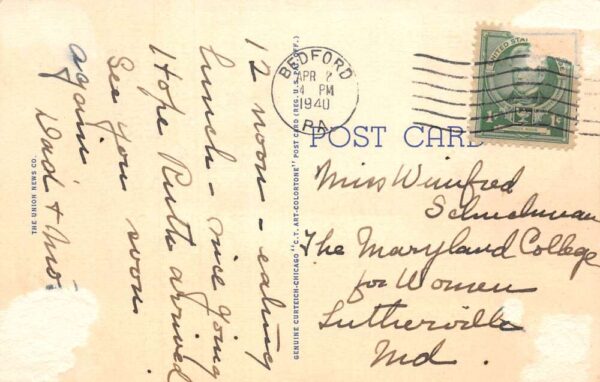 12 noon - eating
lunch - nice going
Hope Ruth arrived
See you soon
again
Dad + Mo
THE UNION NEWS CO.
GENUINE CURTEICH-CHICAGO "C.T. ART-COLORTONE" POST CARD (REG. U.S. PAT. OFF.)
BEDFORD
APR 2
4 PM
1940
PA.
UNITED STA
1c 1c
POST CARD
Miss Winifred
The Maryland College
for Women
Lutherville
Md.